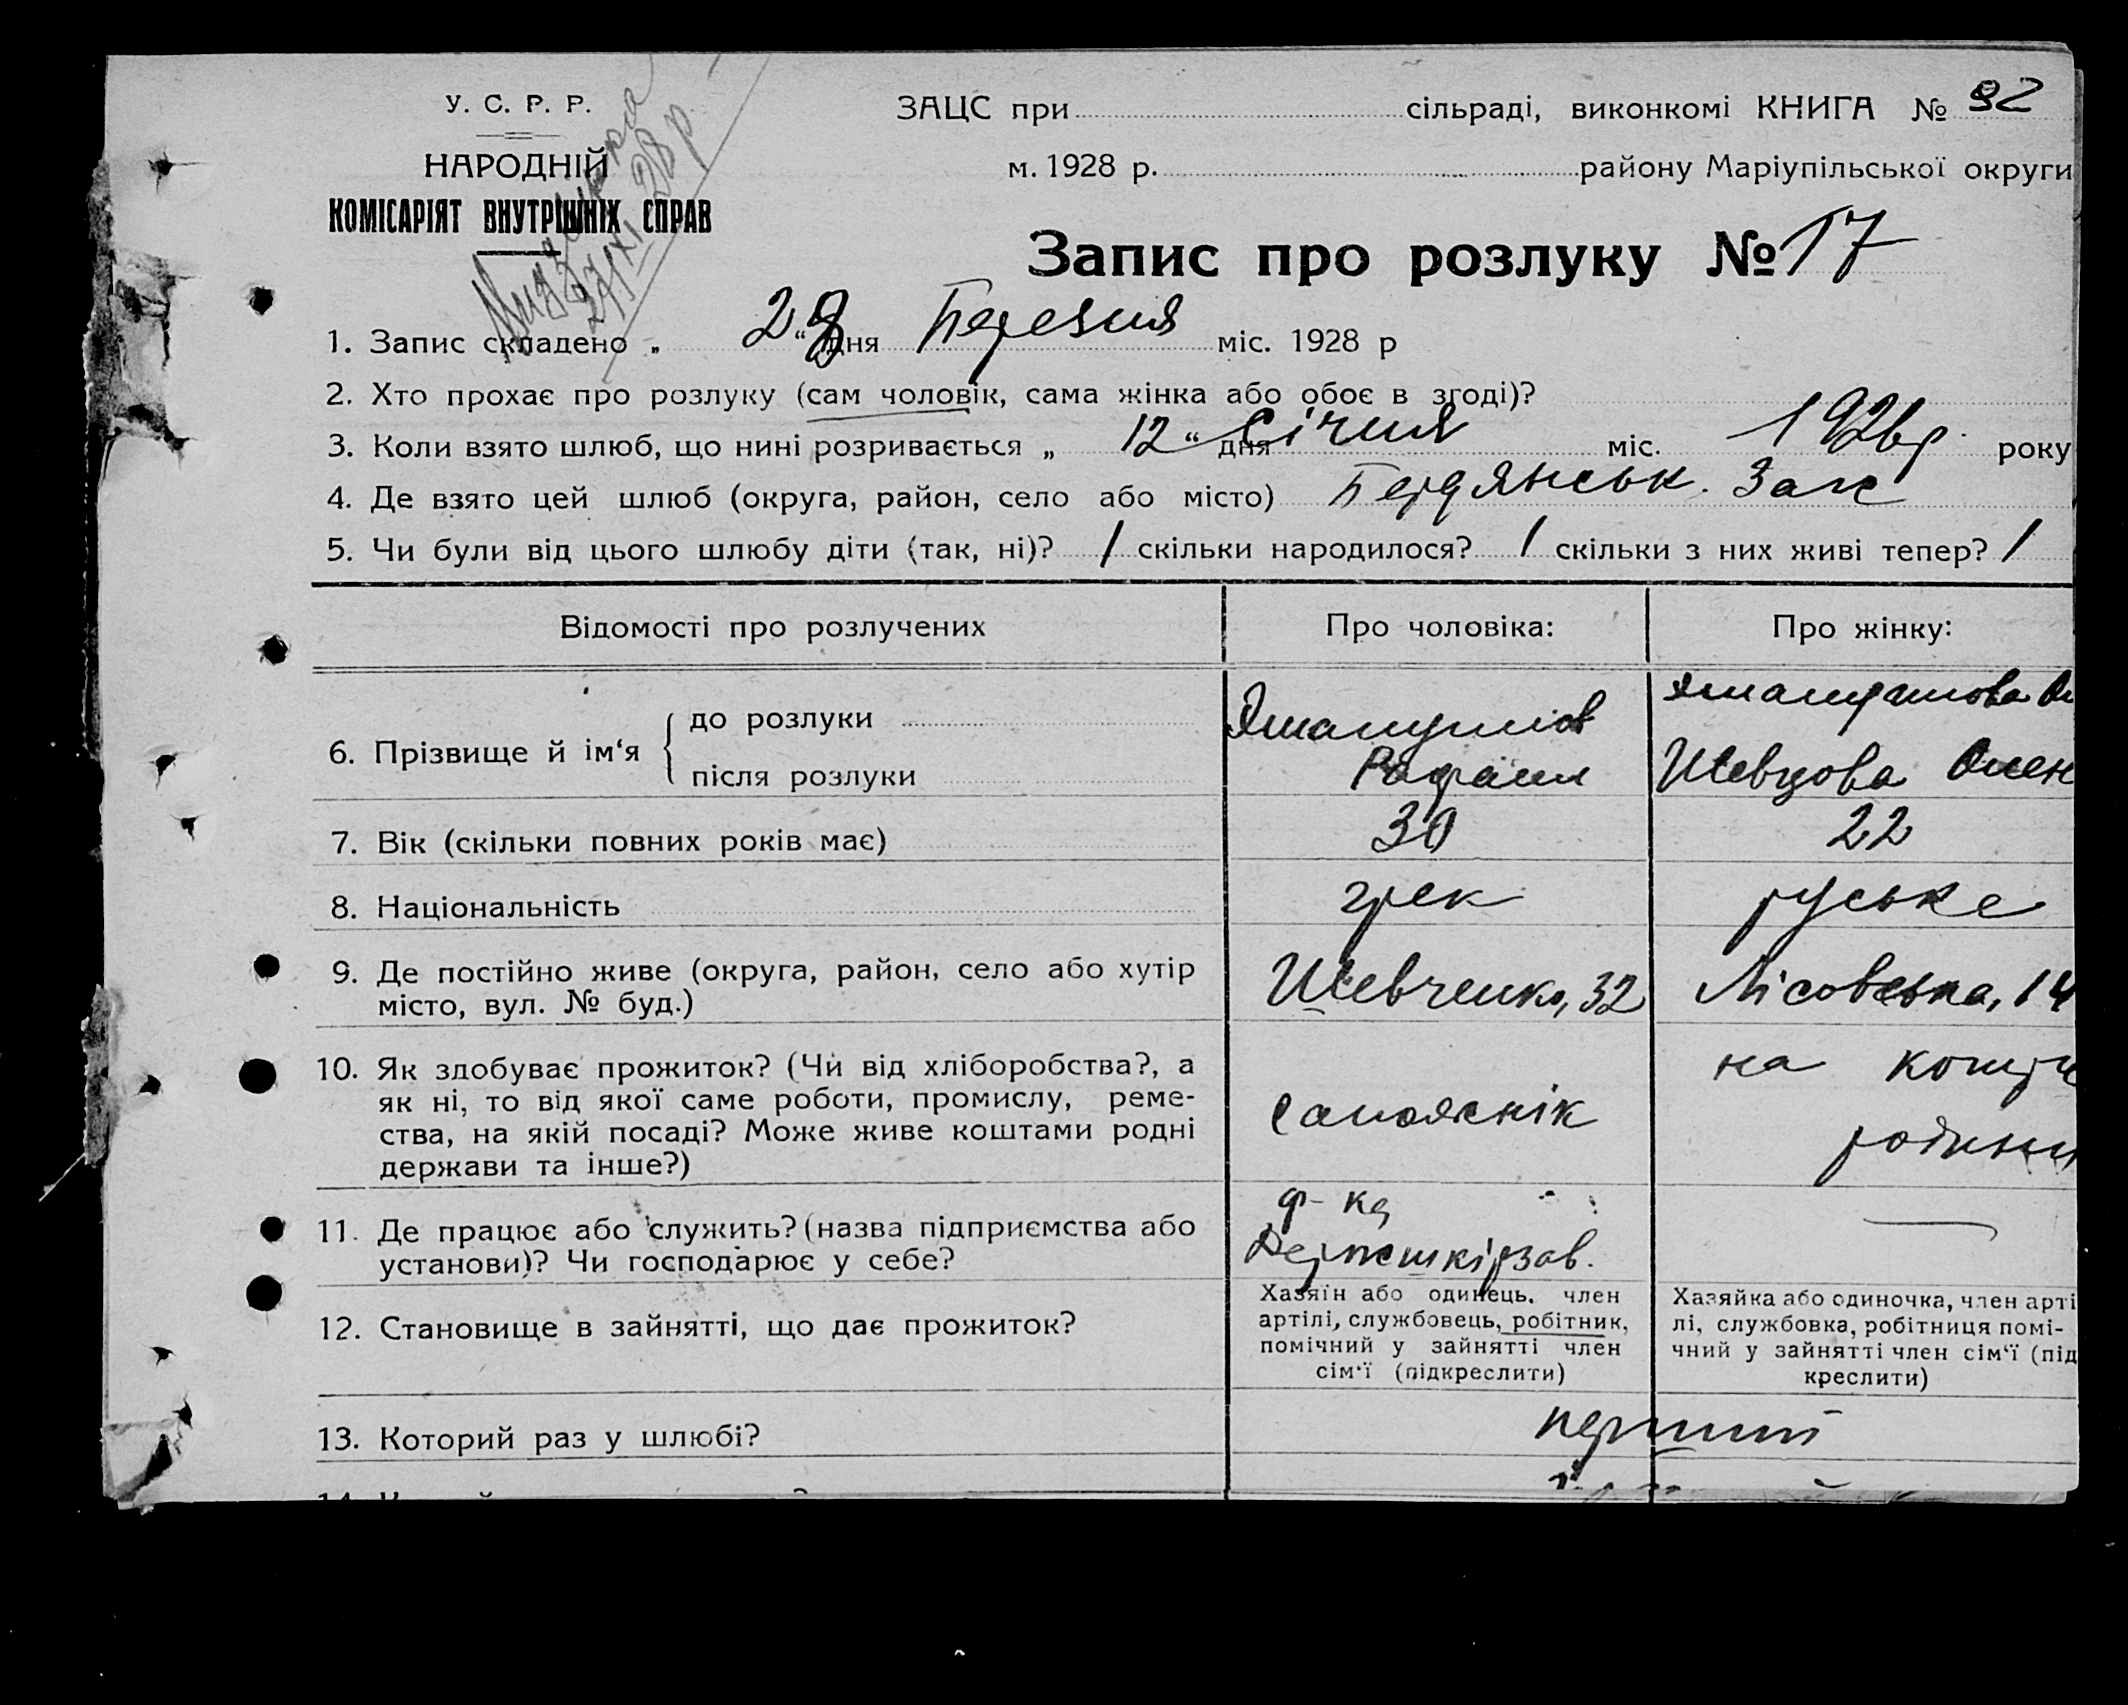 У. С. Р. Р.
НАРОДНІЙ
КОМІСАРІЯТ ВНУТРІШНІХ СПРАВ
27/XI 28 р
ЗАЦС при сільраді, виконкомі КНИГА № 92
м. 1928 р. району Маріупільської округи
Запис про розлуку № 17
1. Запис складено „ 28 “ дня Березня міс. 1928 р
2. Хто прохає про розлуку (сам чоловік, сама жінка або обоє в згоді)?
3. Коли взято шлюб, що нині розривається „ 12 “ дня Січня міс. 1926 р. року
4. Де взято цей шлюб (округа, район, село або місто) Бердянськ. Загс
5. Чи були від цього шлюбу діти (так, ні)? / скільки народилося? / скільки з них живі тепер? /
Відомості про розлучених Про чоловіка: Про жінку:
6. Прізвище й ім‘я
до розлуки
після розлуки Шевцова Олен
7. Вік (скільки повних років має) 30 22
8. Національність грек руське
9. Де постійно живе (округа, район, село або хутір
місто, вул. № буд.) Шевченко, 32 Лісовська, 14
10. Як здобуває прожиток? (Чи від хліборобства?, а
як ні, то від якої саме роботи, промислу, реме-
ства, на якій посаді? Може живе коштами родні
держави та інше?)
на
родини
11. Де працює або служить? (назва підприємства або
установи)? Чи господарює у себе?
ф-ка
—
12. Становище в зайнятті, що дає прожиток?
Хазяїн або одинець. член
артілі, службовець, робітник,
помічний у зайнятті член
сім‘ї (підкреслити)
Хазяйка або одиночка, член арті
лі, службовка, робітниця помі-
чний у зайнятті член сім‘ї (під
креслити)
13. Которий раз у шлюбі? перший